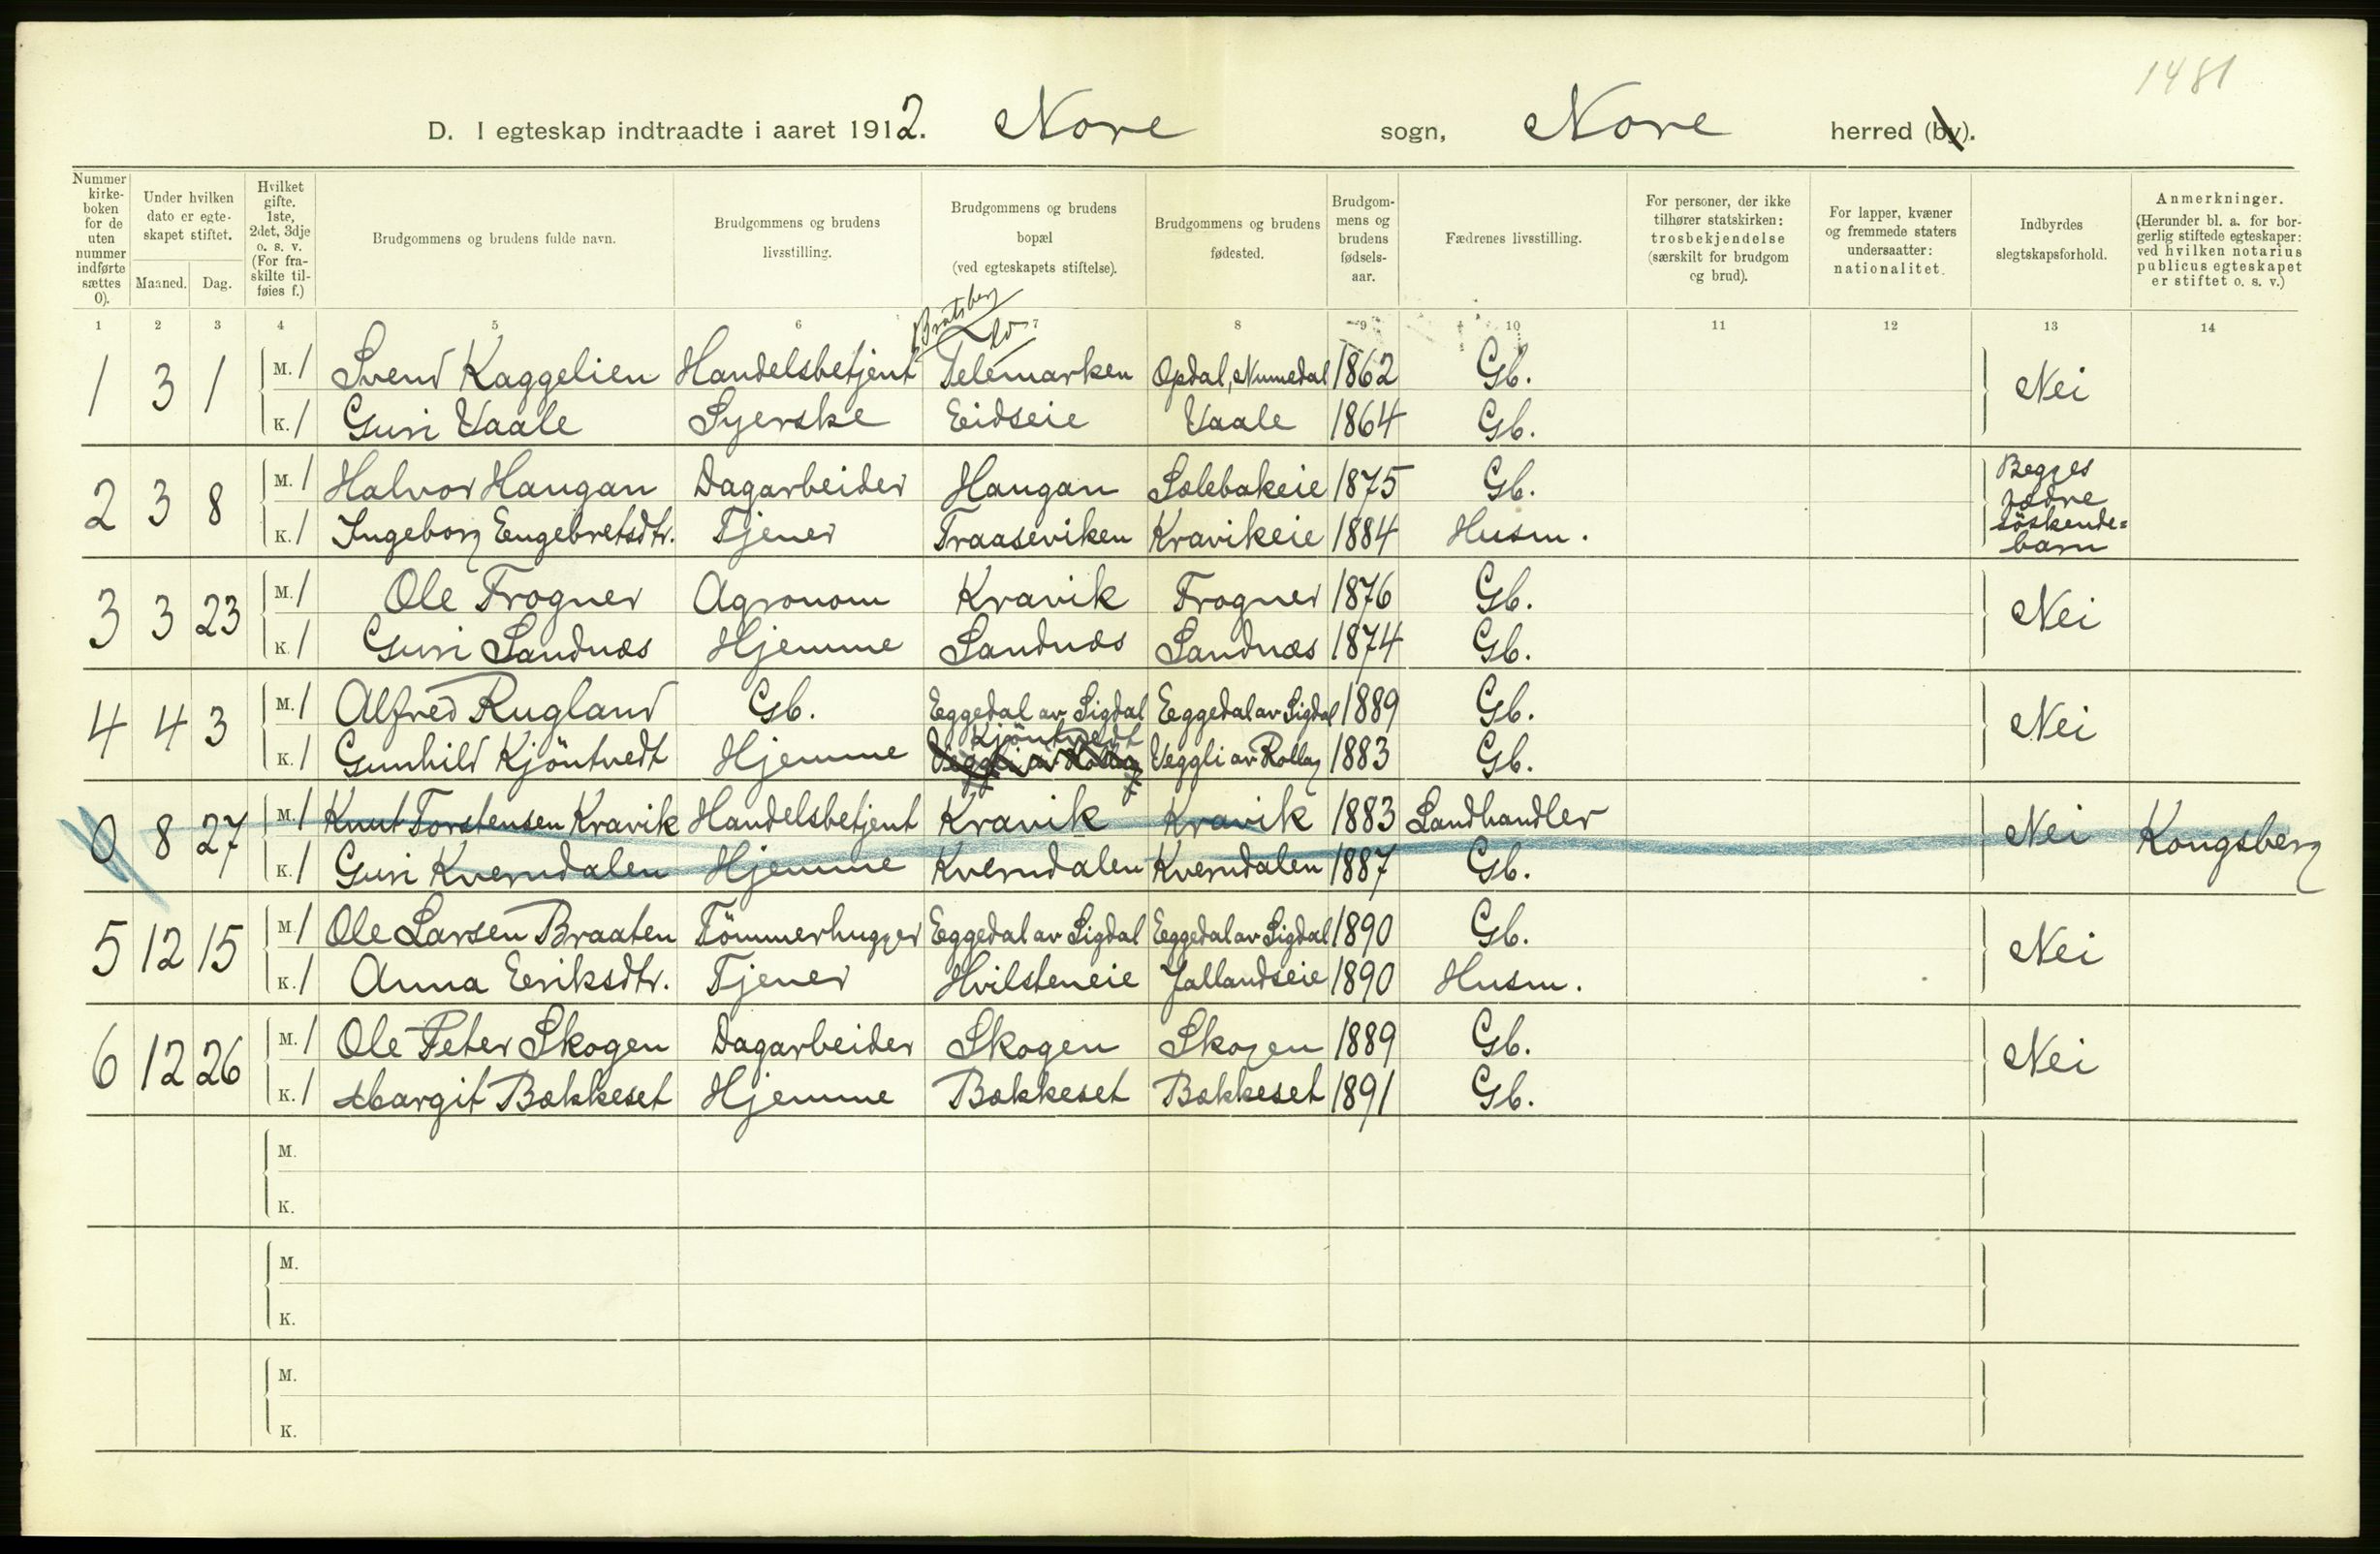 1481
D. I egteskap indtraadte i aaret 1912. Nore sogn, Nore herred (by).
Nummer kirke-boken for de uten nummer indførte sættes 0).
Under hvilken dato er egte-skapet stiftet.
Maaned. Dag.
Hvilket gifte. 1ste, 2det, 3dje o. s. v. (For fra-skilte til-føies f.)
Brudgommens og brudens fulde navn.
Brudgommens og brudens livsstilling.
Brudgommens og brudens bopæl (ved egteskapets stiftelse).
Brudgommens og brudens fødested.
Brudgom-mens og brudens fødsels-aar.
Fædrenes livsstilling.
For personer, der ikke tilhører statskirken: trosbekjendelse (særskilt for brudgom og brud).
For lapper, kvæner og fremmede staters undersaatter: nationalitet.
Indbyrdes slegtskapsforhold.
Anmerkninger. (Herunder bl. a. for bor-gerlig stiftede egteskaper: ved hvilken notarius publicus egteskapet er stiftet o. s. v.)
1 2 3 4 5 6 7 8 9 10 11 12 13 14
Bratsberg
1 3 1 M. 1 Svend Kaggelien Handelsbetjent Telemarken Opdal, Numedal 1862 Gb. Nei
K. 1 Guri Vaale Syerske Eidseie Vaale 1864 Gb.
2 3 8 M. 1 Halvor Haugan Dagarbeider Haugan Solebakeie 1875 Gb. Begges fædre söskende-barn
K. 1 Ingeborg Eengebretsdtr. Tjener Traaseviken Kravikeie 1884 Husm.
3 3 23 M. 1 Ole Frogner Agronom Kravik Frogner 1876 Gb. Nei
K. 1 Guri Sandnæs Hjemme Sandnæs Sandnæs 1874 Gb.
4 4 3 M. 1 Alfred Rugland Gb. Eeggedal av Sigdal Eeggedal av Sigdal 1889 Gb. Nei
Kjöntvedt
K. 1 Gunhild Kjöntvedt Hjemme Veggli av Rollag Veggli av Rollag 1883 Gb.
0 8 27 M. 1 Knut Torstensen Kravik Handelsbetjent Kravik Kravik 1883 Landhandler Nei Kongsberg
K. 1 Guri Kverndalen Hjemme Kverndalen Kverndalen 1887 Gb.
5 12 15 M. 1 Ole Larsen Braaten Tömmerhugger Eeggedal av Sigdal Eeggedal av Sigdal 1890 Gb. Nei
K. 1 Anna Eeriksdtr. Tjener Hvilsteneie Jallandseie 1890 Husm.
6 12 26 M. 1 Ole Peter Skogen Dagarbeider Skogen Skogen 1889 Gb. Nei
K. 1 Margit Bækkeset Hjemme Bækkeset Bækkeset 1891 Gb.
M.
K.
M.
K.
M.
K.